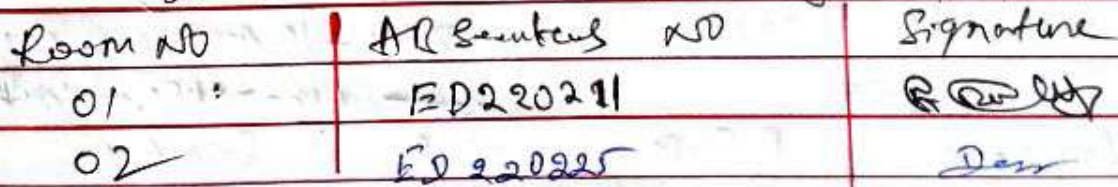 Room NO AB Seuteus NO Signature
01 ED220211
02 ED220225